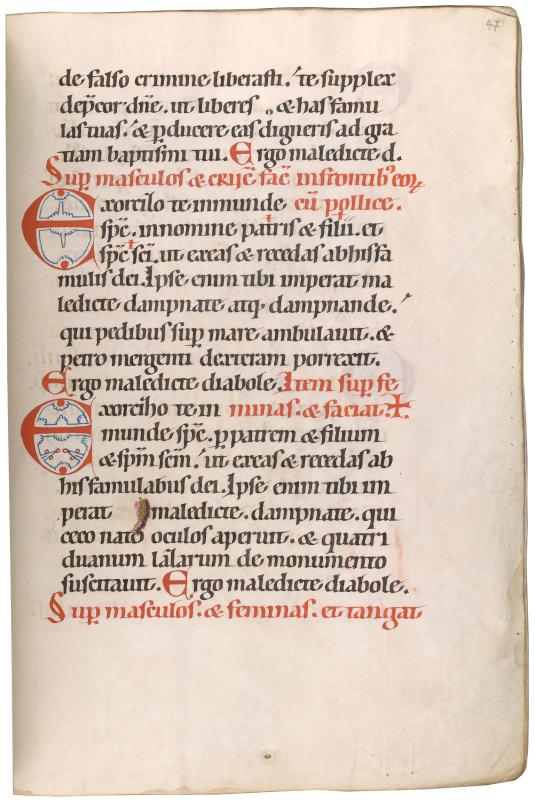 47
de falso crimine liberasti. te supplex
dep̄cor dn̄e. ut liberes & has famu
las tuas. & ꝑducere eas digneris ad gra
tiam baptismi tui. Ergo maledicte d.
Suꝑ masculos & cruc̄ fac̄ in frontib; eoꝝ
Exorcizo te inmunde cū pollice.
sp̄c. in nomine patris & filii. et
sp̄c sc̄i. ut exeas & recedas ab his fa
mulis dei. Ipse enim tibi imperat ma
ledicte dampnate atq; dampnande.
qui pedibus suꝑ mare ambulauit. &
petro mergenti dexteram porrexit.
Ergo maledicte diabole. Item suꝑ fe
Exorcizo te in minas. & faciat. ✝
munde sp̄c. ꝑ patrem & filium
& sp̄m sc̄m. ut exeas & recedas ab
his famulabus dei. Ipse enim tibi im
perat maledicte. dampnate. qui
ceco nato oculos aperuit. & quatri
duanum lazarum de monumento
suscitauit. Ergo maledicte diabole.
Suꝑ masculos. & feminas. et tangat